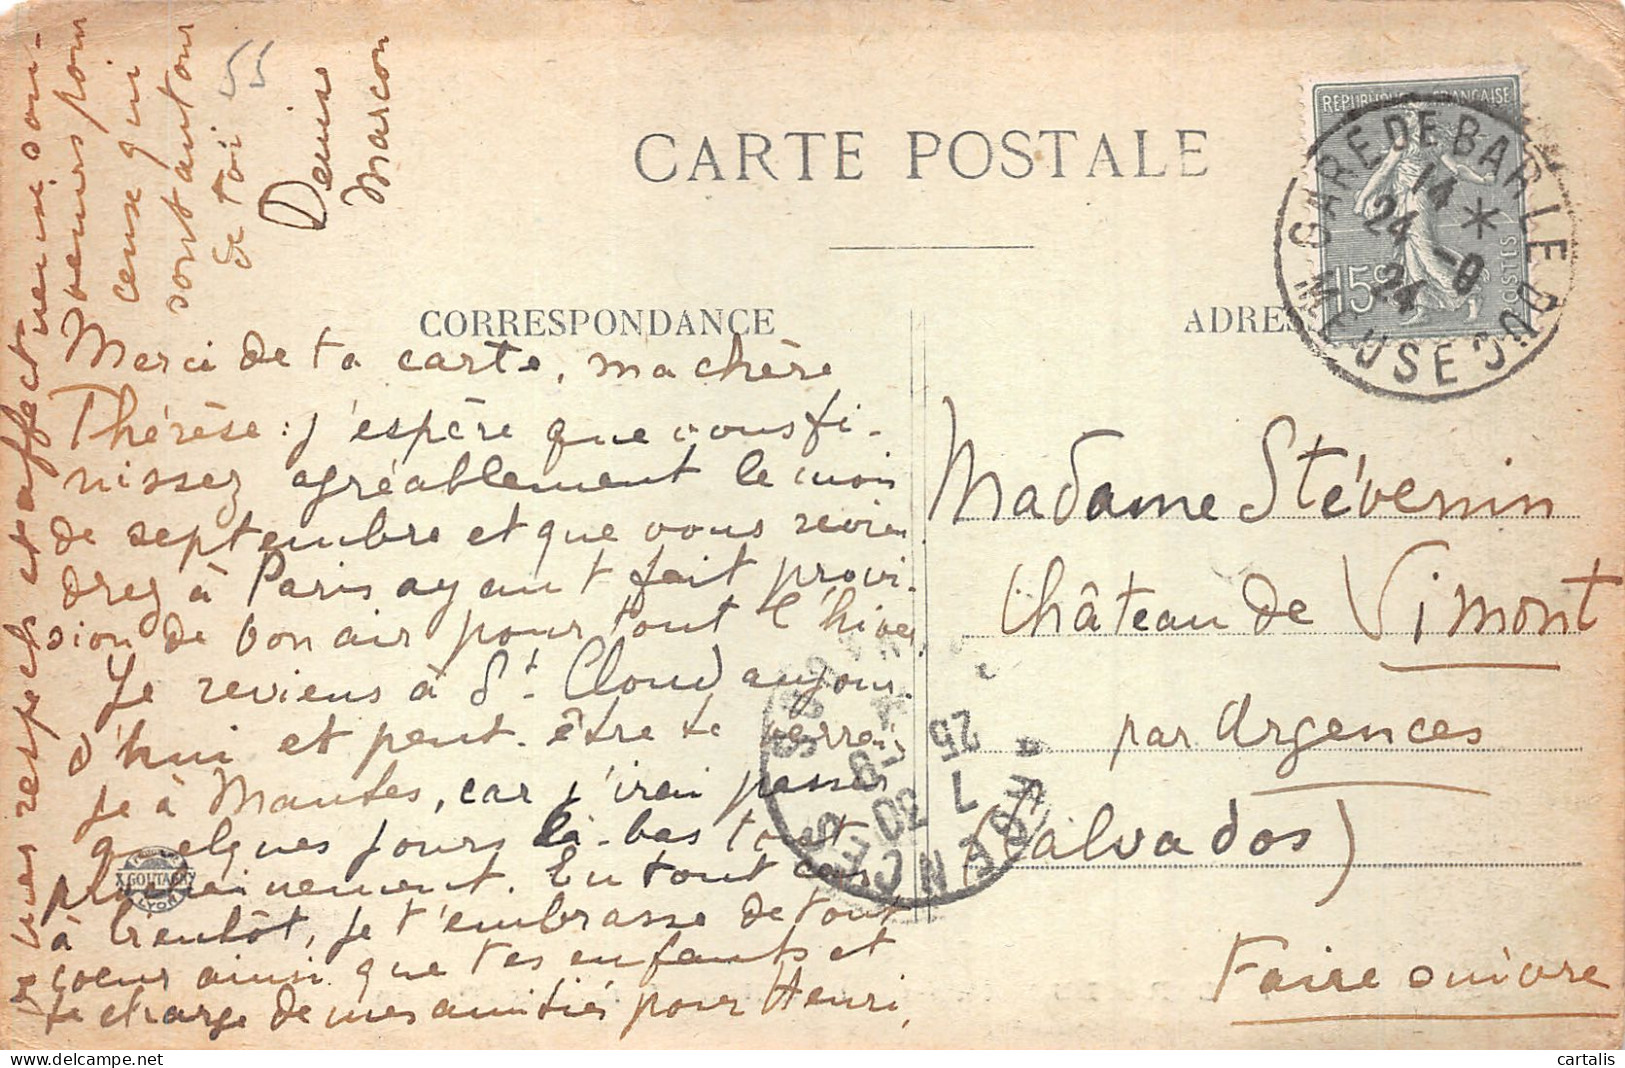 CARTE POSTALE
CORRESPONDANCE
Merci de ta carte, ma chère
Thérèse : j'espère que vous fi-
nissez agréablement le mois
de septembre et que vous revien
drez à Paris ayant fait provi-
sion de bon air pour tout l'hiver.
Je reviens à St. Cloud aujour-
d'hui et peut-être te verrai
je à Mantes, car j'irai passer
quelques jours là-bas tout
prochainement. En tout cas
à bientôt, je t'embrasse de tout
coeur ainsi que tes enfants et
te charge de mes amitiés pour Henri,
et mes respects et affectueux sou-
venirs pour
ceux qui
sont autour
de toi
Denise
Marcon
55
X. GOUTAGNY
LYON
ADRES
REPUBLIQUE FRANÇAISE
15c
POSTES
GARE DE BAR LE DUC
MEUSE
14 *
24 -9
24
Madame Stévenin
Château de Vimont
par Argences
(Calvados)
Faire suivre
25
-9
7 30
cartalis